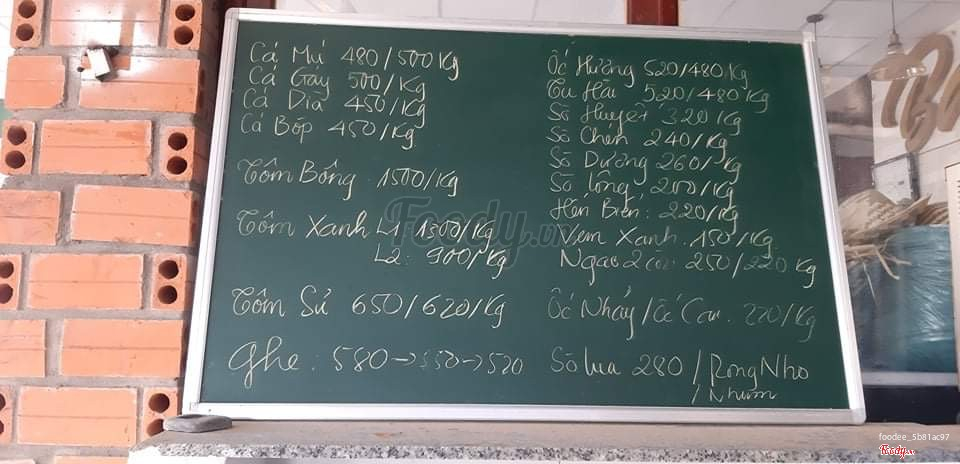 Cá Mú 480/500 Kg
Cá Gáy 500/Kg
Cá Dìa 450/Kg
Cá Bóp 450/Kg
Tôm Bông 1500/Kg
Tôm Xanh L1 1300/Kg
L2: 900/Kg
Tôm Sú 650/620/Kg
Ghẹ: 580→550→520
Ốc Hương 520/480 Kg
Tu Hài 520/480 Kg
Sò Huyết 320 Kg
Sò Chén 240/Kg
Sò Dương 260/Kg
Sò lông 200/Kg
Hến Biển: 220/Kg
Vẹm Xanh. 150/Kg
Ngao 2 cồi 250/220 Kg
Ốc Nhảy / Ốc Cau. 220/Kg
Sò lụa 280 / Rong Nho
/ Nhum
Foody.vn
foodee_5b81ac97
Foody.vn